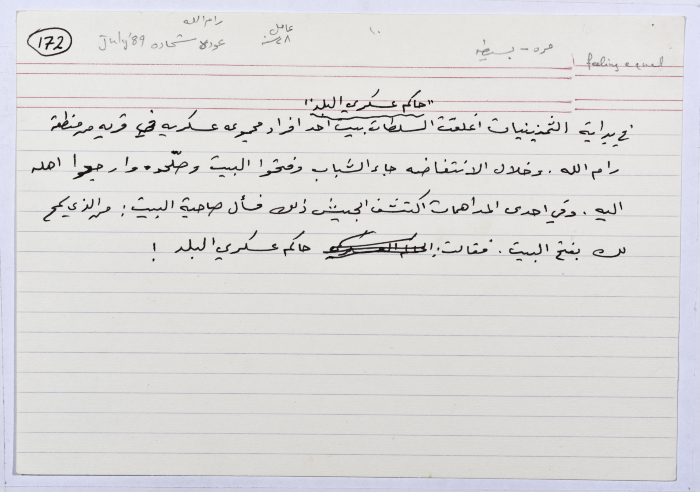 172
رام الله
عودة شحادة July '89
عامل
٢٨ سنة
١٠
مره - بسيطه
feeling equal
"حاكم عسكري البلد"
في بداية الثمنينيات اغلقت السلطات بيت احد افراد مجموعه عسكريه في قريه من منطقة
رام الله. وخلال الانتفاضه جاء الشباب وفتحوا البيت وصلّحوه وارجعوا اهله
اليه. وفي احدى المداهمات اكتشف الجيش ذلك فسأل صاحبة البيت: من الذي سمح
لك بفتح البيت. فقالت: حاكم عسكري البلد !